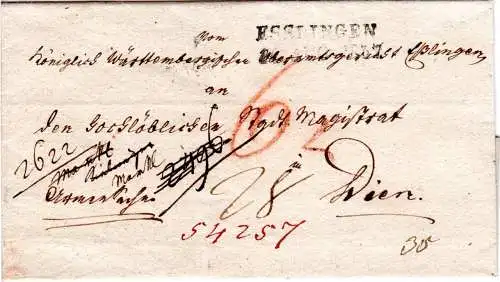 Vom
ESSLINGEN
Königlich Württembergischen Oberamtsgericht Eßlingen
an
den Hochlöblichen Stadt Magistrat
6
2622
2490
zu
Armensache
28
Wien.
54257
30